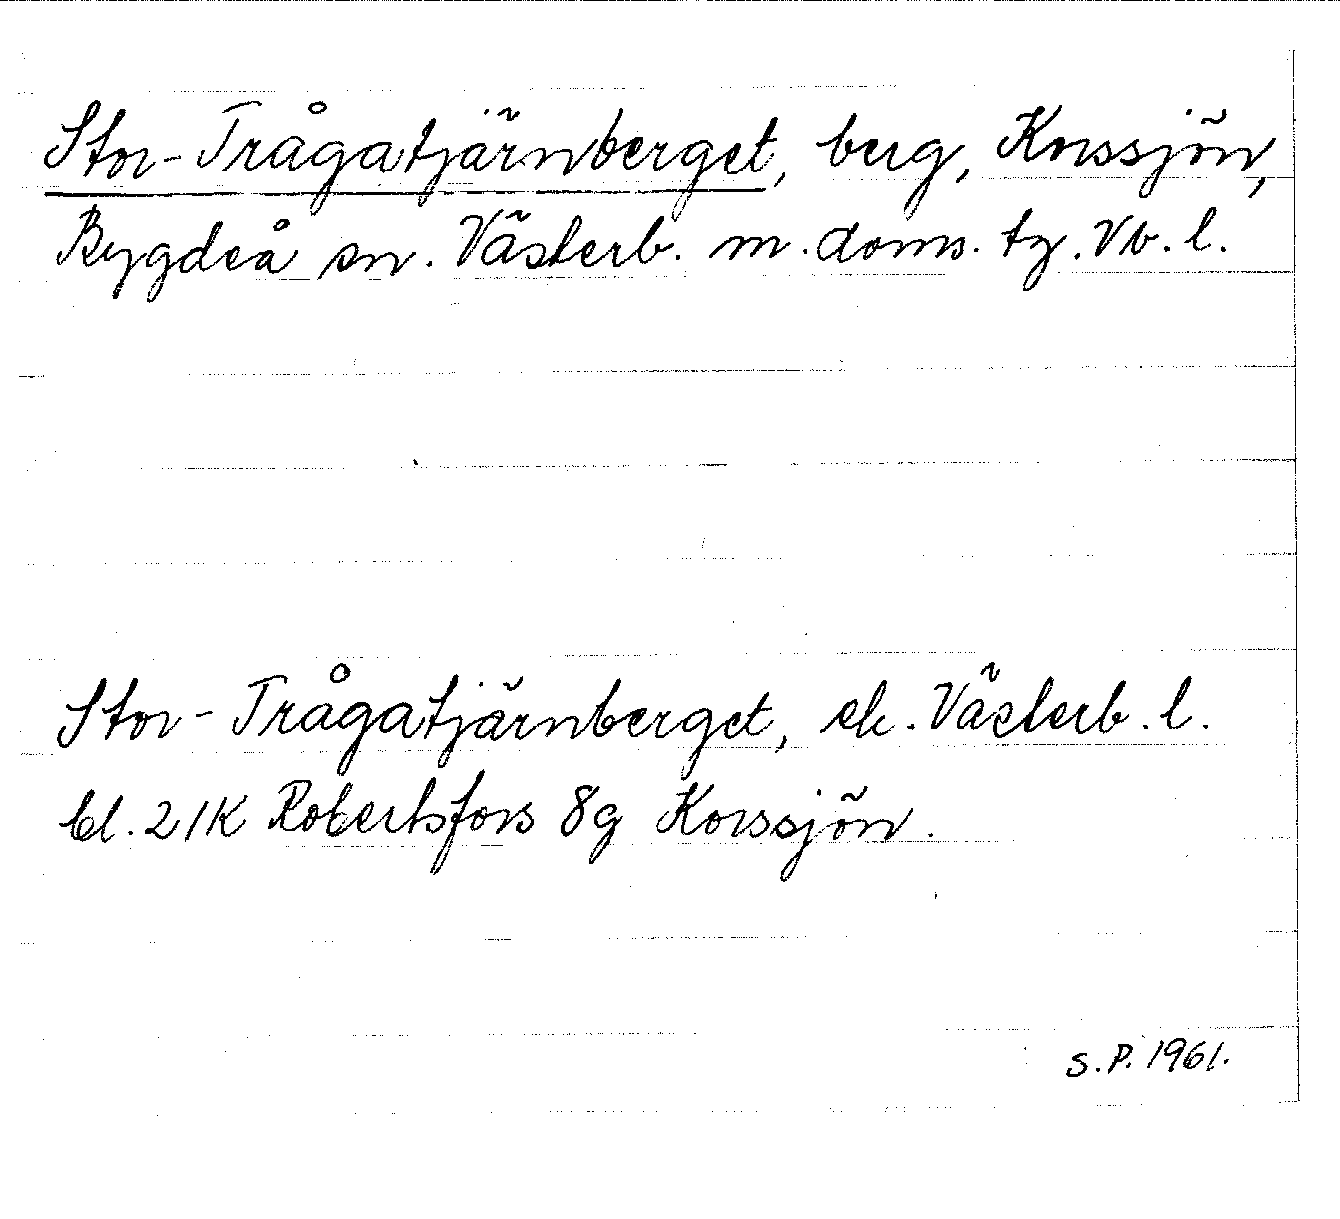 Stor-Trågatjärnberget, berg, Korssjön,
Bygdeå sn. Västerb. m. doms. tg. Vb. l.
Stor-Trågatjärnberget, ek. Västerb. l.
bl. 21K Robertsfors 8g Korssjön.
S.P. 1961.